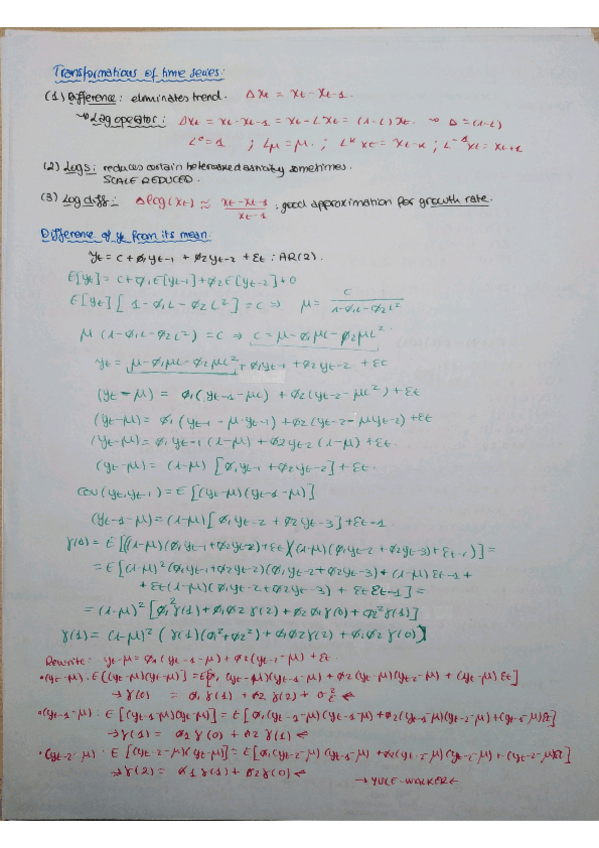 Transformations of time series:
(1) Difference: eliminates trend. Δxt = xt - xt-1.
Lag operator: Δxt = xt - xt-1 = xt - Lxt = (1-L)xt. → Δ = (1-L)
L⁰ = 1 ; Lμ = μ. ; Lᵏ xt = xt-k ; L⁻¹xt = xt+1
(2) Logs: reduces certain heteroskedasticity sometimes.
SCALE REDUCED.
(3) Log diff: Δlog(xt) ≈ (xt - xt-1)/(xt-1) ; good approximation for growth rate.
Difference of yt from its mean:
yt = c + φ1yt-1 + φ2yt-2 + εt : AR(2).
E[yt] = c + φ1E[yt-1] + φ2E[yt-2] + 0
E[yt] [1 - φ1L - φ2L²] = c ⇒ μ = c/(1-φ1L-φ2L²)
μ (1-φ1L-φ2L²) = c ⇒ c = μ - φ1μL - φ2μL².
yt = μ - φ1μL - φ2μL² + φ1yt-1 + φ2yt-2 + εt
(yt - μ) = φ1(yt-1 - μL) + φ2(yt-2 - μL²) + εt
(yt-μ) = φ1(yt-1 - μ yt-1) + φ2(yt-2 - μyt-2) + εt
(yt-μ) = φ1yt-1(1-μ) + φ2yt-2(1-μ) + εt.
(yt-μ) = (1-μ) [φ1yt-1 + φ2yt-2] + εt.
cov(yt,yt-1) = E[(yt-μ)(yt-1-μ)]
(yt-1-μ) = (1-μ)[φ1yt-2 + φ2yt-3] + εt-1.
γ(0) = E[((1-μ)(φ1yt-1 + φ2yt-2) + εt)((1-μ)(φ1yt-2 + φ2yt-3) + εt-1)] =
= E[(1-μ)²(φ1yt-1 + φ2yt-2)(φ1yt-2 + φ2yt-3) + (1-μ)εt-1 +
+ εt(1-μ)(φ1yt-2 + φ2yt-3) + εtεt-1] =
= (1-μ)² [φ1²γ(1) + φ1φ2γ(2) + φ2φ1γ(0) + φ2²γ(1)]
γ(1) = (1-μ)² (γ(1)(φ1²+φ2²) + φ1φ2γ(2) + φ1φ2γ(0))
Rewrite: yt-μ = φ1(yt-1-μ) + φ2(yt-2-μ) + εt.
•(yt-μ): E[(yt-μ)(yt-μ)] = E[φ1(yt-μ)(yt-1-μ) + φ2(yt-μ)(yt-2-μ) + (yt-μ)εt]
→ γ(0) = φ1γ(1) + φ2γ(2) + σε² ←
•(yt-1-μ): E[(yt-1-μ)(yt-μ)] = E[φ1(yt-1-μ)(yt-1-μ) + φ2(yt-1-μ)(yt-2-μ) + (yt-1-μ)εt]
→ γ(1) = φ1γ(0) + φ2γ(1) ←
•(yt-2-μ): E[(yt-2-μ)(yt-μ)] = E[φ1(yt-2-μ)(yt-1-μ) + φ2(yt-2-μ)(yt-2-μ) + (yt-2-μ)εt]
→ γ(2) = φ1γ(1) + φ2γ(0) ←
→ YULE-WALKER ←